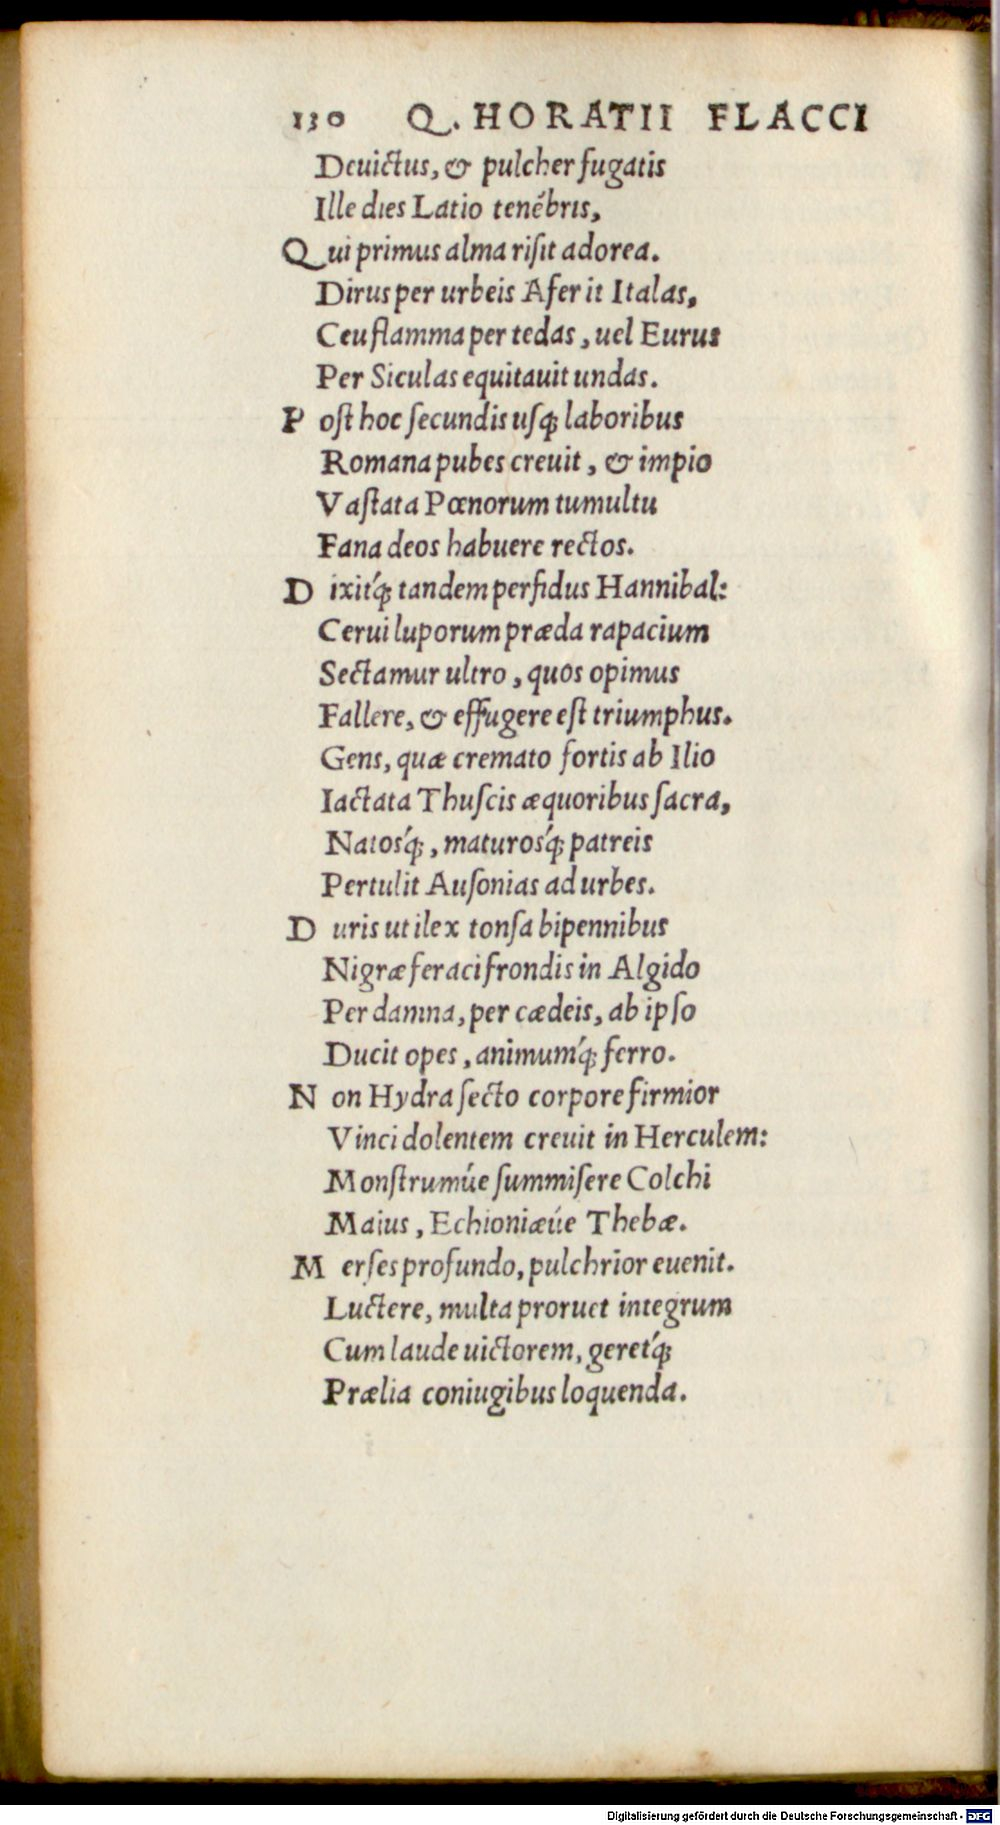 130 Q. HORATII FLACCI
Deuictus, & pulcher fugatis
Ille dies Latio tenébris,
Qui primus alma riſit adorea.
Dirus per urbeis Afer it Italas,
Ceu flamma per tedas, uel Eurus
Per Siculas equitauit undas.
P oſt hoc ſecundis uſq; laboribus
Romana pubes creuit, & impio
Vaſtata Pœnorum tumultu
Fana deos habuere rectos.
D ixit'q; tandem perfidus Hannibal:
Cerui luporum præda rapacium
Sectamur ultro, quos opimus
Fallere, & effugere eſt triumphus.
Gens, quæ cremato fortis ab Ilio
Iactata Thuſcis æquoribus ſacra,
Natos'q;, maturos'q; patreis
Pertulit Auſonias ad urbes.
D uris ut ilex tonſa bipennibus
Nigræ feraci frondis in Algido
Per damna, per cædeis, ab ipſo
Ducit opes, animum'q; ferro.
N on Hydra ſecto corpore firmior
Vinci dolentem creuit in Herculem:
Monſtrumúe ſummiſere Colchi
Maius, Echioniæúe Thebæ.
M erſes profundo, pulchrior euenit.
Luctere, multa proruet integrum
Cum laude uictorem, geret'q;
Prælia coniugibus loquenda.
Digitalisierung gefördert durch die Deutsche Forschungsgemeinschaft - DFG